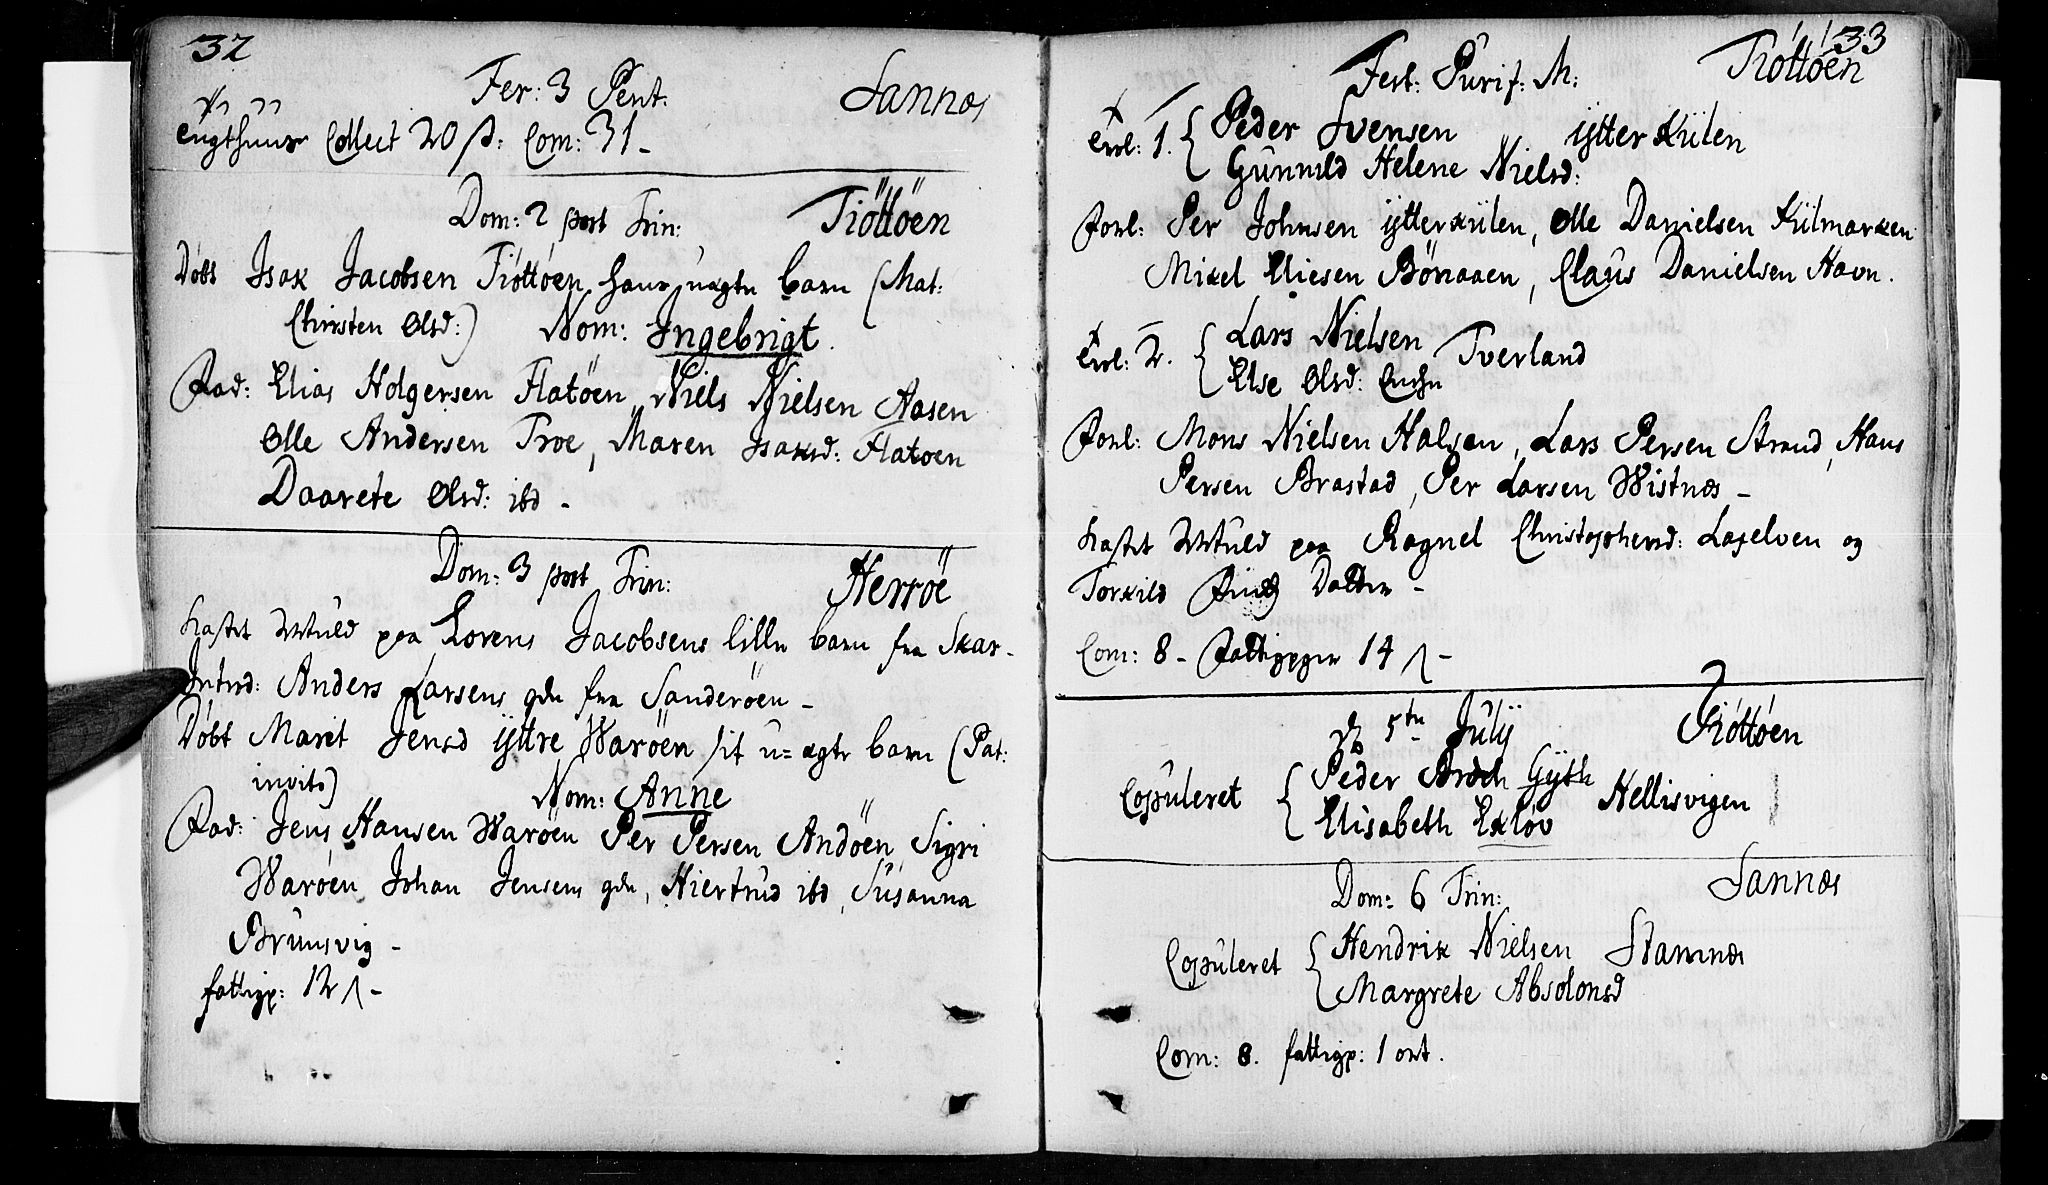 32
Fer: 3 Pent: Sannæs
Tugthuus Collect 20 ß: Com: 31 -
Dom: 2 post Trin: Tiöttöen
Döbt Isak Jacobsen Tiöttöen hans uægte barn (Mat:
Chirsten Olsd:) Nom: Ingebrigt.
Fad: Elias Holgersen Flatöen, Niels Nielsen Aasen
Olle Andersen Troe, Maren Isaksd: Flatöen
Daarete Olsd: ibd -
Dom: 3 post Trin: Herröe
Kastet Muld paa Lorens Jacobsens lille barn fra Skar-
Introd: Anders Larsens qde fra Sanderöen -
Döbt Marit Jensd ÿttre Waröen sit u=ægte barn (Pat:
invito) Nom: Anne
Fad: Jens Hansen Waröen Per Persen Andöen, Sigri
Waröen, Johan Jensens qde, Hiertrud ibd, Susanna
Brunsvig -
fattigp: 12 ß -
33
Fest: Purif: M: Tiöttöen
Trol: 1. { Peder Svensen ÿtter Kulen
Gunnild Helene Nielsd:
Forl: Per Johnsen ÿtterkulen, Olle Danielsen Kulmarken
Mikel Eliesen Bönaaen, Claus Danielsen Havn.
Trol: 2. { Lars Nielsen Tverland
Else Olsd: Enke
Forl: Mons Nielsen Halsen, Lars Persen Strand, Hans
Persen Brastad, Per Larsen Wistnæs -
Kastet Muld paa Ragnel Christophersd: Laxelven og
Torkild Datter -
Com: 8 - Fattigpge 14 ß -
D 5te Julÿ Tiöttöen
Copuleret { Peder Broch Gÿth Hellisvigen
Elisabeth Exlöv
Dom: 6 Trin: Sannæs
Copuleret { Hendrik Nielsen Stamnæs
Margrete Absolonsd
Com: 8. fattigp: 1 ort.